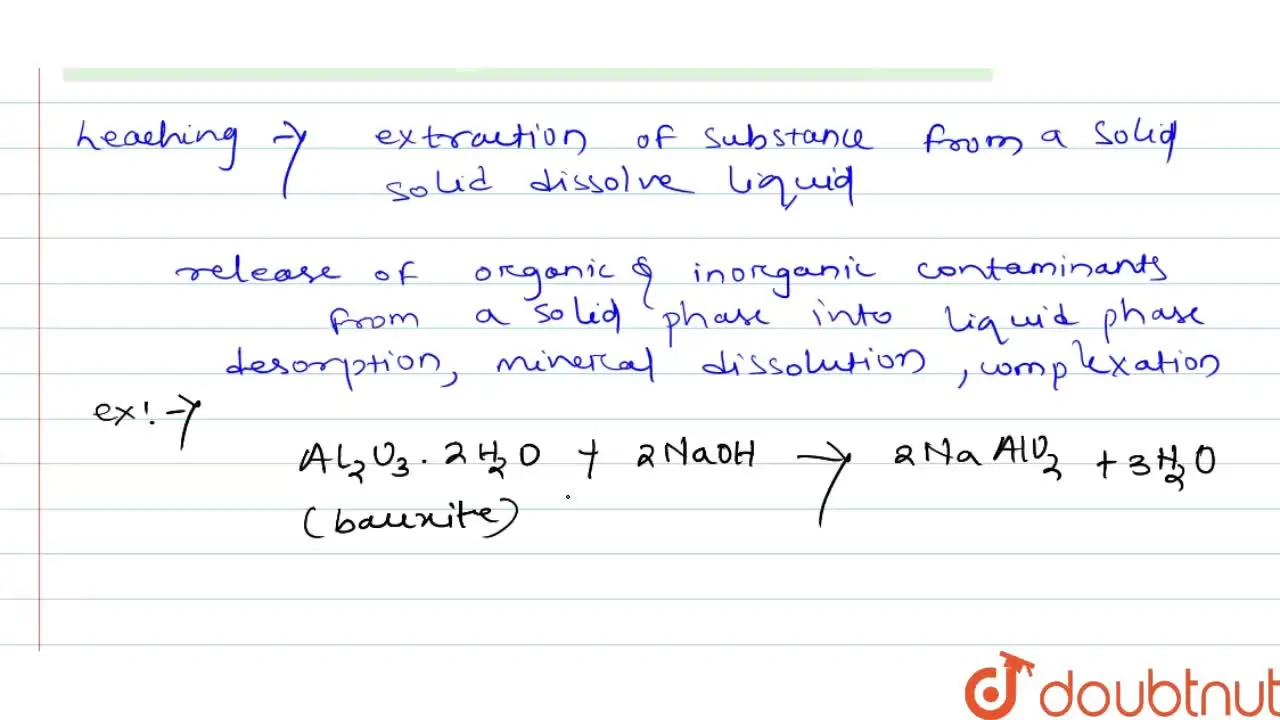 Leaching → extraction of substance from a solid
solid dissolve liquid
release of organic & inorganic contaminants
from a solid phase into liquid phase
desorption, mineral dissolution, complexation
ex: →
Al₂O₃·2H₂O + 2NaOH → 2NaAlO₂ + 3H₂O
(bauxite)
doubtnut